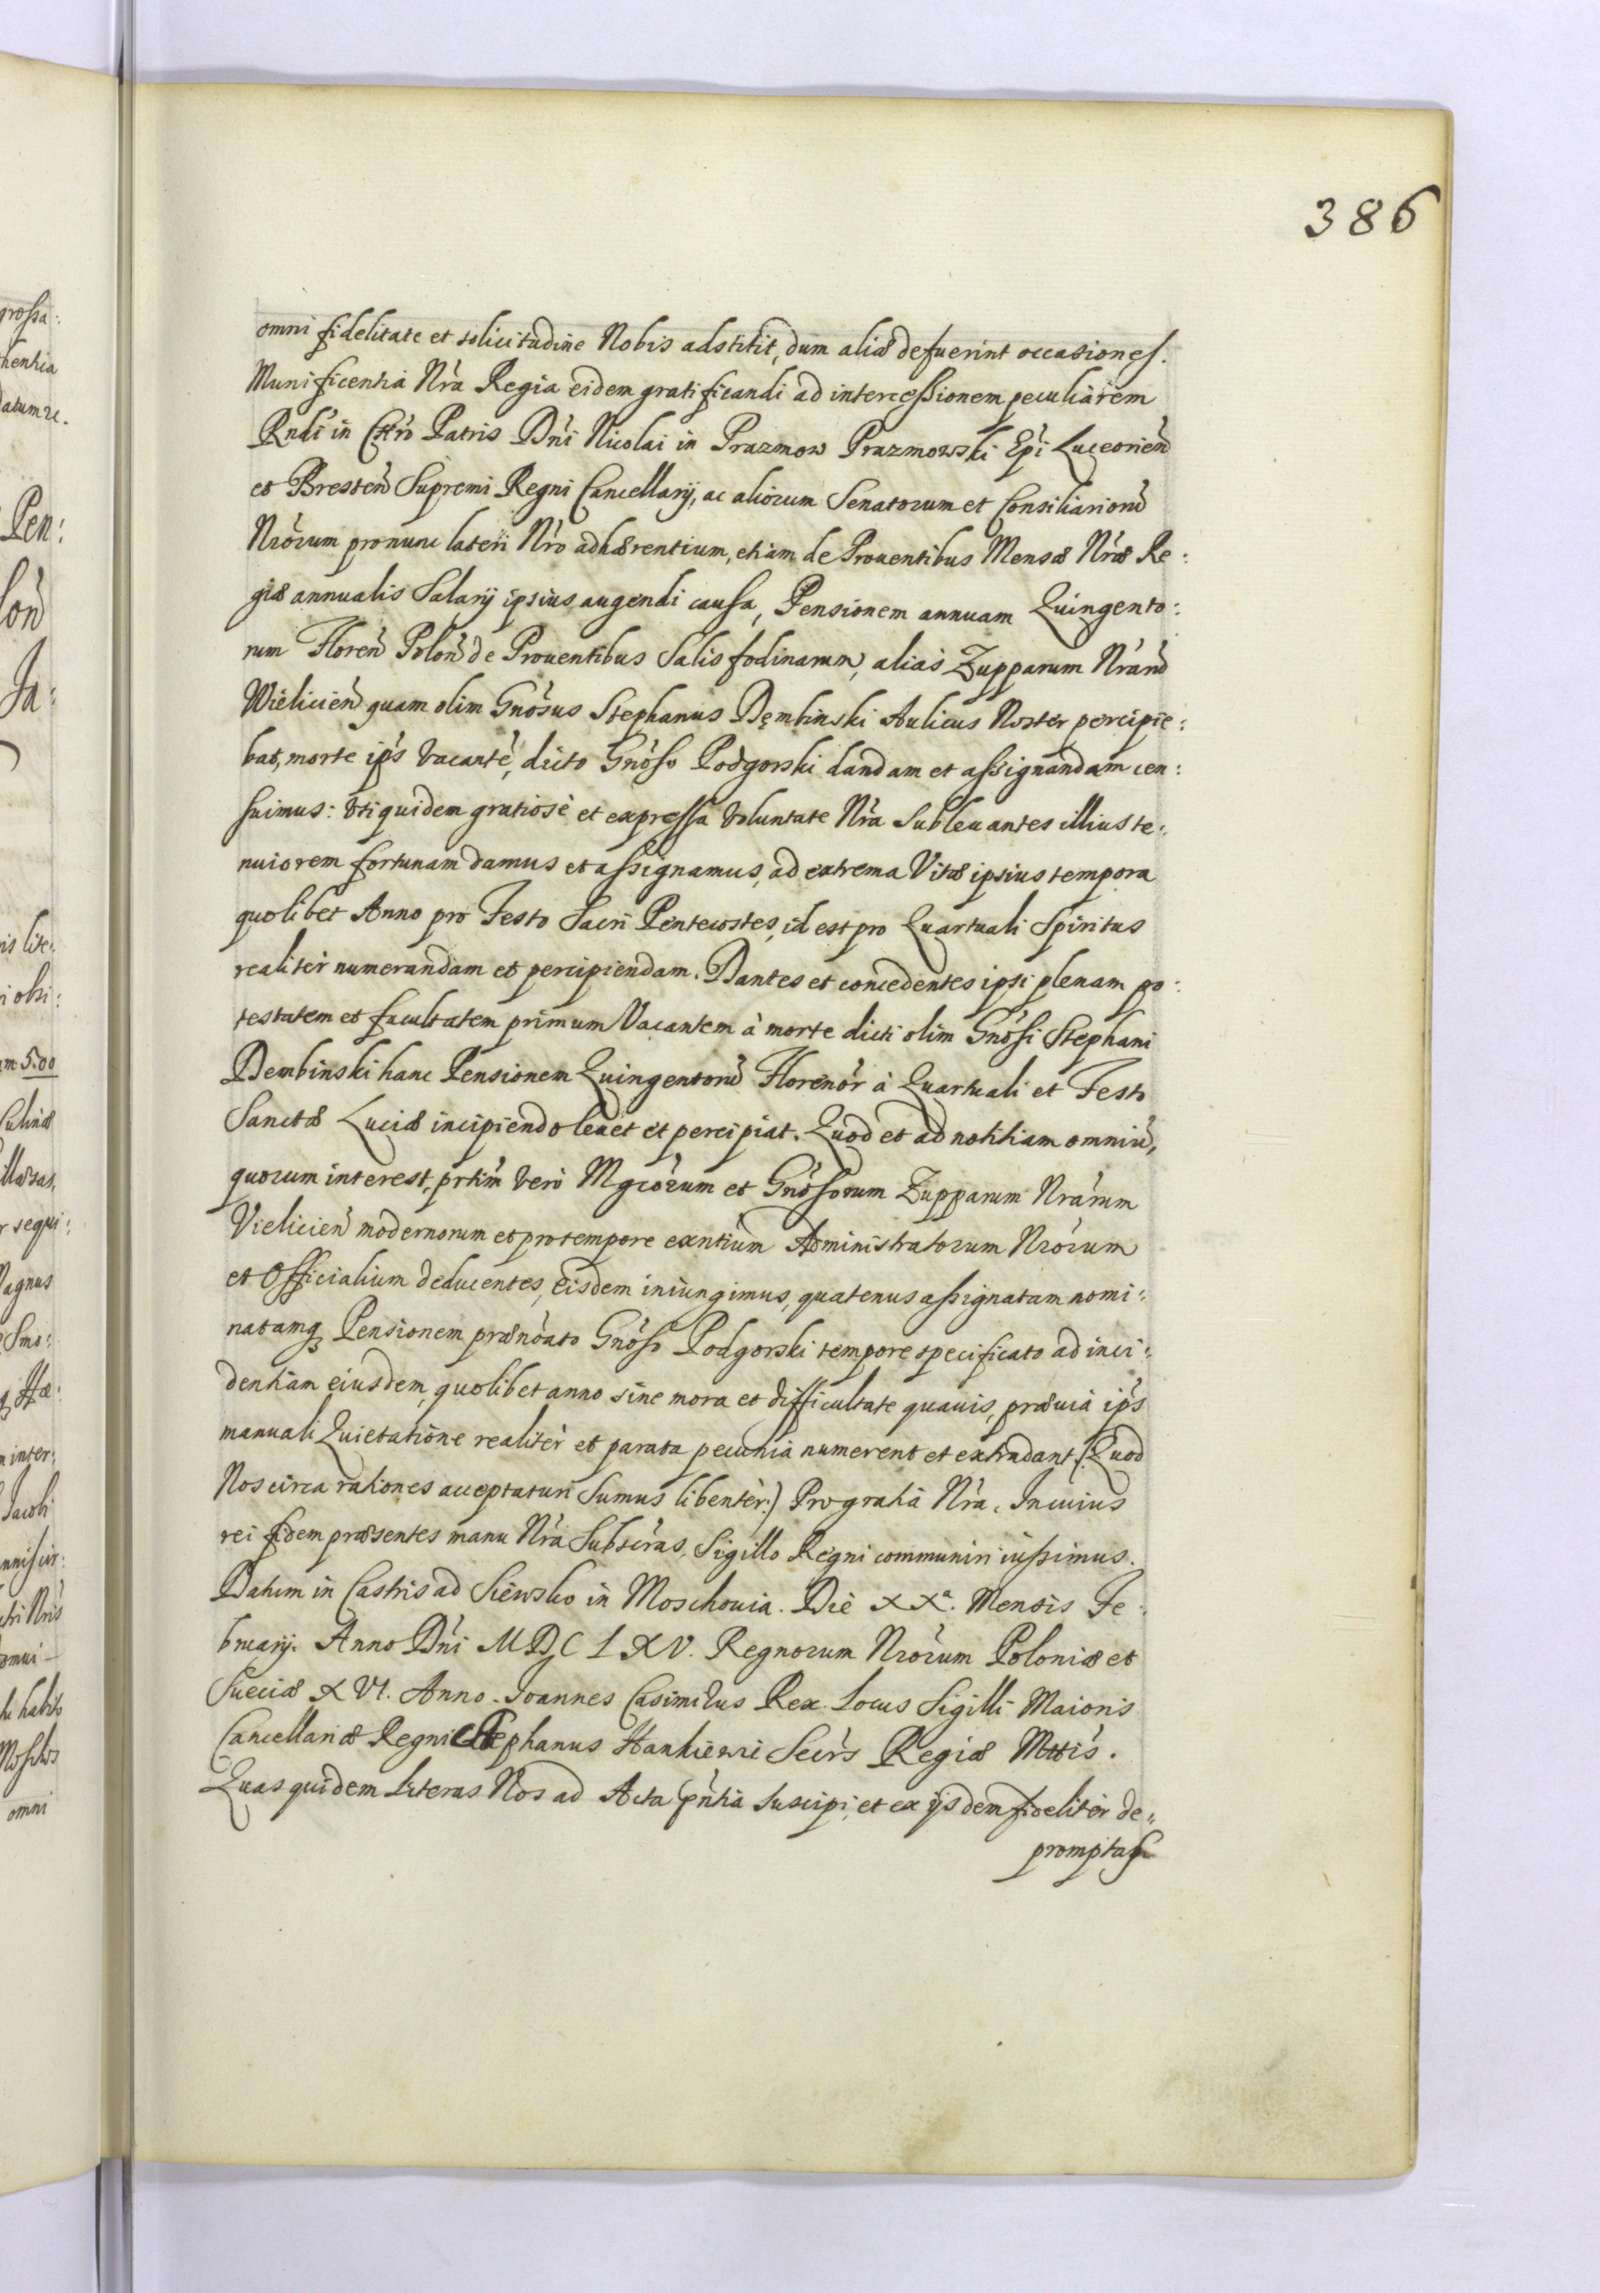 386
omni fidelitate et solicitudine Nobis adstitit, dum aliæ defuerint occasiones.
Munificentia Nr̃a Regia eidem gratificandi ad intercessionem peculiarem
Rndi in Chr̃o Patris Dñi Nicolai in Prazmow Prazmowski Ep̃i Luceorien̄
et Bresten̄ Supremi Regni Cancellarij, ac aliorum Senatorum et Consiliariorũ
Nr̃orum pronunc lateri Nr̃o adhærentium, etiam de Prouentibus Mensæ Nr̃æ Re:
giæ annualis Salarij ipsius augendi causa, Pensionem annuam Quingento:
rum Floren̄ Polon̄ de Prouentibus Salis fodinarum, alias Zupparum Nr̃arũ
Wielicien̄ quam olim Gñosus Stephanus Dębinski Aulicus Noster percipie:
bat, morte ip̃s vacante, dicto Gñoso Podgorski dandam et assignandam cen:
suimus: vti quidem gratiose et expressa voluntate Nr̃a subleuantes illius te:
nuiorem fortunam damus et assignamus, ad extrema Vitæ ipsius tempora
quolibet Anno pro Festo Sacri Pentecostes, id est pro Quartuali Spiritus
realiter numerandam et percipiendam. Dantes et concedentes ipsi plenam po:
testatem et facultatem primum Vacantem à morte dicti olim Gñosi Stephani
Dembinski hanc Pensionem Quingentorũ Florenor̃ à Quartuali et Festo
Sanctæ Luciæ incipiendo leuet et percipiat. Quod et ad notitiam omniũ,
quorum interest, prtim̃ vero Mgcorum et Gñosorum Zupparum Nr̃arum
Vielicien̄ modernorum et protempore exntium Administratorum Nr̃orum
et Officialium deducentes, eisdem iniungimus, quatenus assignatam nomi:
natamq3 Pensionem prænõato Gñoso Podgorski tempore specificato ad inci:
dentiam eiusdem, quolibet anno sine mora et difficultate quauis, præuia ip̃s
manuali Quietatione realiter et parata pecunia numerent et extradant (: Quod
Nos circa rationes acceptaturi sumus libenter :) Pro gratia Nr̃a. In cuius
rei fidem præsentes manu Nr̃a Subscr̃as, Sigillo Regni communiri iussimus.
Datum in Castris ad Siewsko in Moschouia. Die XXa. Mensis Fe:
bruarij. Anno Dñi MDCLXV. Regnorum Nr̃orum Poloniæ et
Sueciæ XVI. Anno. Joannes Casimirus Rex. Locus Sigilli Maioris
Cancellariæ Regni Stephanus Hankiewi Secr̃s Regiæ Mttis.
Quas quidem Literas Nos ad Acta p̃ntia suscipi, et ex ijsdem fideliter de:
promptas